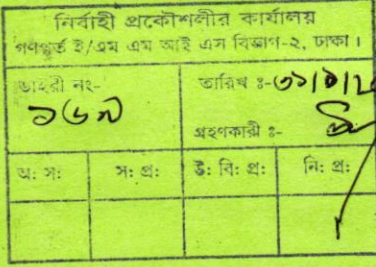 নির্বাহী প্রকৌশলীর কার্যালয়
গণপূর্ত ই/এম এম আই এস বিভাগ-২, ঢাকা।
ডাইরী নং-
তারিখ ঃ-৩১/১/২
১৬৯
গ্রহণকারী ঃ-
অ: স: স: প্র: উ: বি: প্র: নি: প্র: